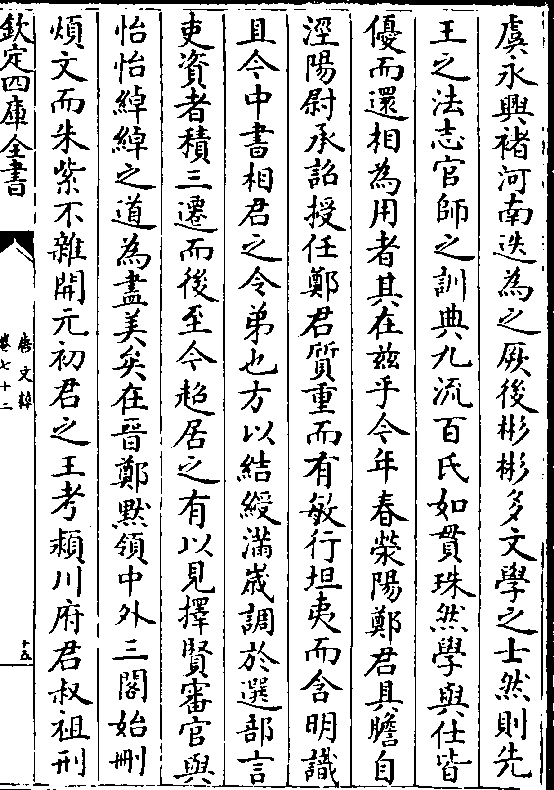 虞永興褚河南迭為之厥後彬彬多文學之士然則先
王之法志官師之訓典九流百氏如貫珠然學與仕皆
優而還相為用者其在兹乎今年春滎陽鄭君具瞻自
涇陽尉承詔授任鄭君質重而有敏行坦夷而含明識
且今中書相君之令弟也方以結綬滿嵗調於選部言
吏資者積三遷而後至今超居之有以見擇賢審官與
怡怡綽綽之道為盡美矣在晉鄭黙領中外三閣始刪
煩文而朱紫不雜開元初君之王考潁川府君叔祖刑
欽定四庫全書
唐文粹
卷七十二
十五